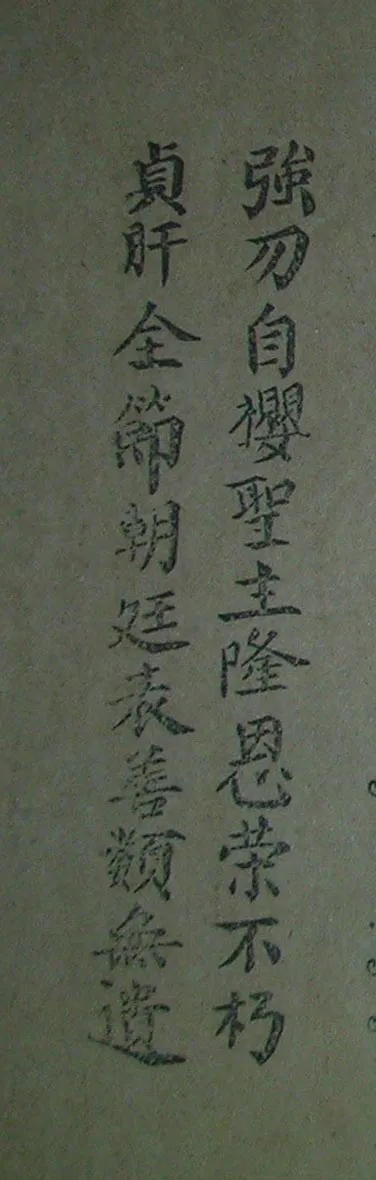 強刃自攖聖主隆恩荣不朽
貞肝全節朝廷表善類無遺